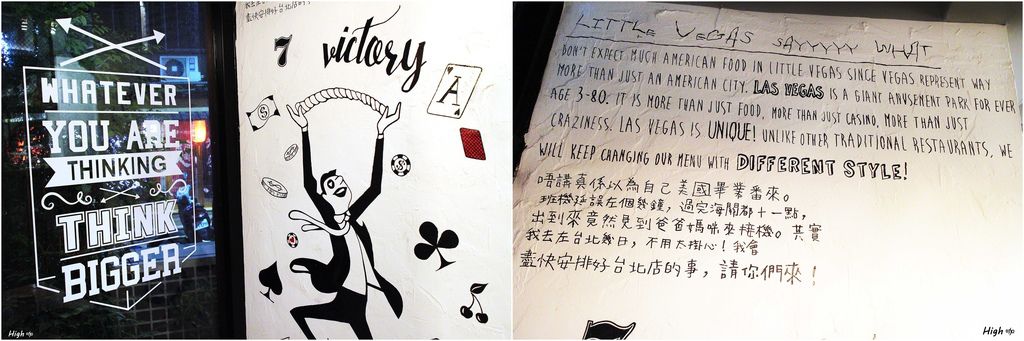 WHATEVER
YOU ARE
THINKING
THINK
BIGGER
盡快安排好台北店的
7
victory
A
$
High
LITTLE VEGAS SAYYYYY WHAT
DON'T EXPECT MUCH AMERICAN FOOD IN LITTLE VEGAS SINCE VEGAS REPRESENT WAY
MORE THAN JUST AN AMERICAN CITY. LAS VEGAS IS A GIANT AMUSEMENT PARK FOR EVER
AGE 3-80. IT IS MORE THAN JUST FOOD, MORE THAN JUST CASINO, MORE THAN JUST
CRAZINESS. LAS VEGAS IS UNIQUE! UNLIKE OTHER TRADITIONAL RESTAURANTS, WE
WILL KEEP CHANGING OUR MENU WITH DIFFERENT STYLE!
唔講真係以為自己美國畢業番來。
班機延誤左個幾鐘，過完海關都十一點，
出到來竟然見到爸爸媽咪來接機。其實
我去左台北幾日，不用太掛心！我會
盡快安排好台北店的事，請你們來！
High